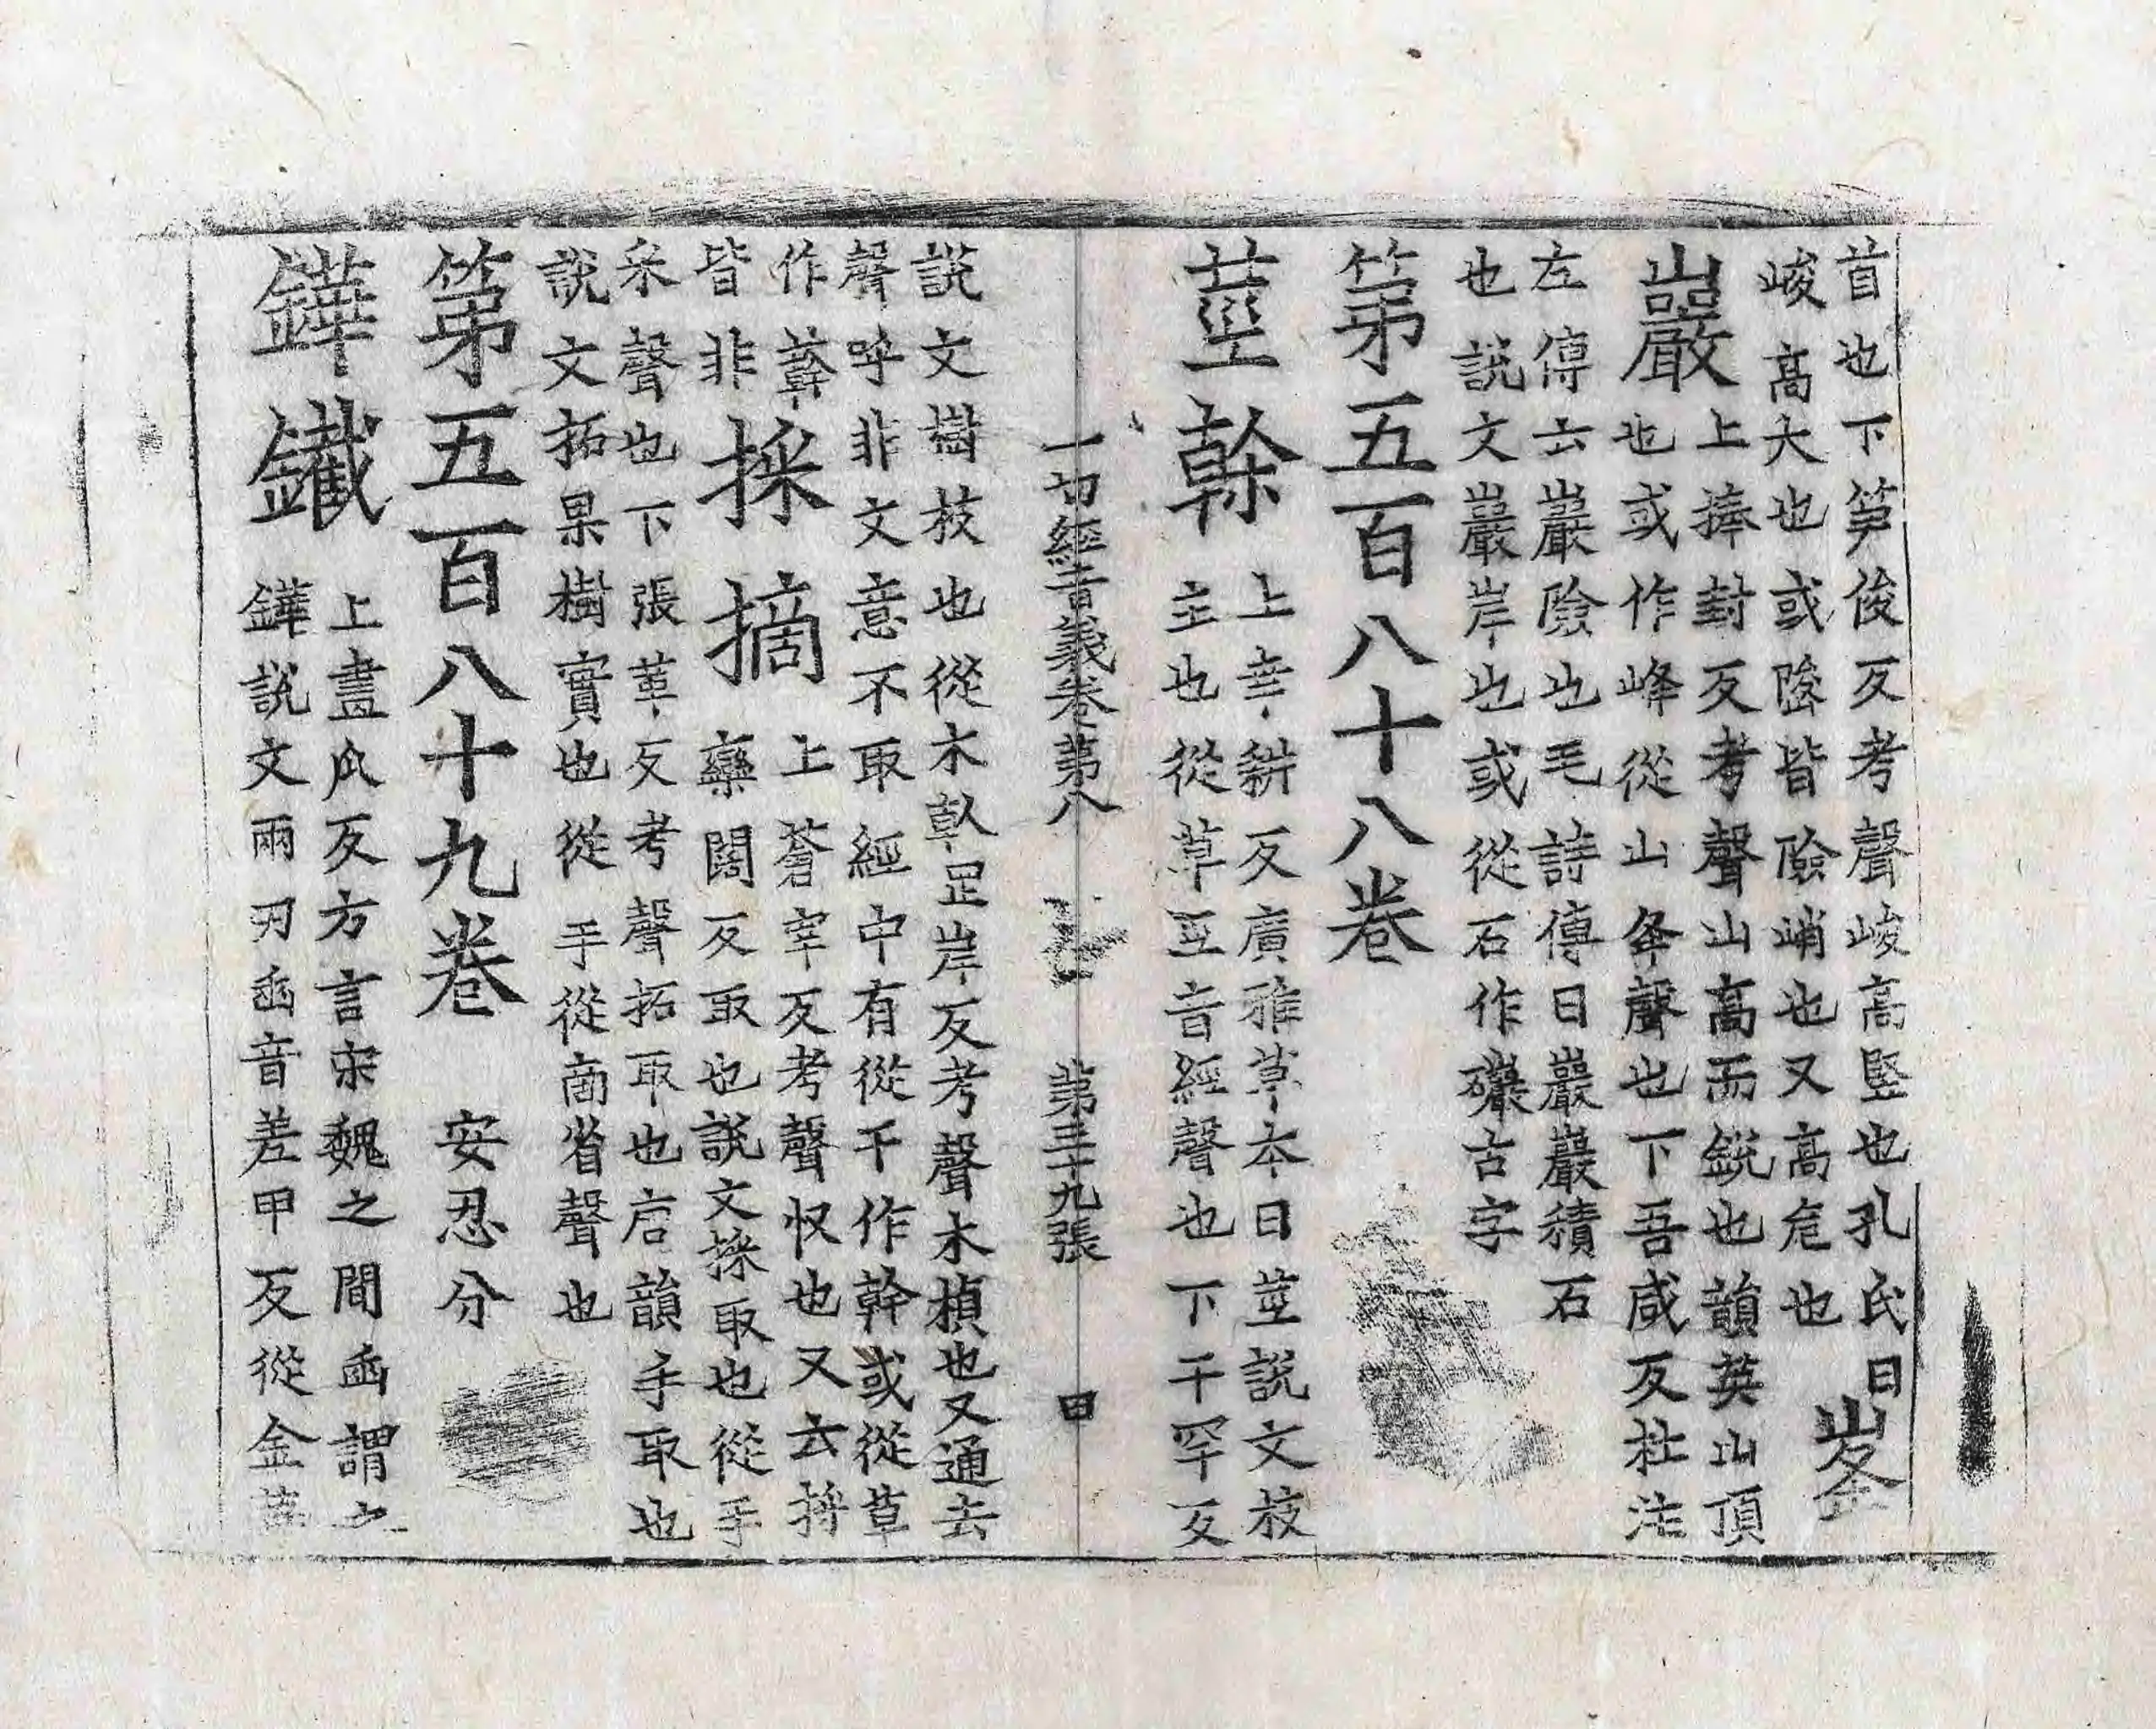 首也下笋俊反考聲峻高竪也孔氏曰峯
峻高大也或陖皆險峭也又高危也
巖上捧封反考聲山高而銳也韻英山頂
也或作峰從山夆聲也下吾咸反杜注
左傳云巖險也毛詩傳曰巖巖積石
也說文巖岸也或從石作礹古字
第五百八十八卷
莖幹上幸耕反廣雅草本曰莖說文枝
主也從草巠音經聲也下干罕反
一切經音義卷第八 第三十九張 曰
說文樹枝也從木倝罡岸反考聲木楨也又通去
聲呼非文意不取經中有從干作幹或從草
作䕎皆非
採摘上蒼宰反考聲收也又云捋
藥闊反取也說文採取也從手
采聲也下張革反考聲拓取也宕韻手取也
說文拓果樹實也從手從啇省聲也
第五百八十九卷 安忍分
鏵鑱上盡瓜反方言宋魏之間臿謂之
鏵說文兩刃臿音差甲反從金華